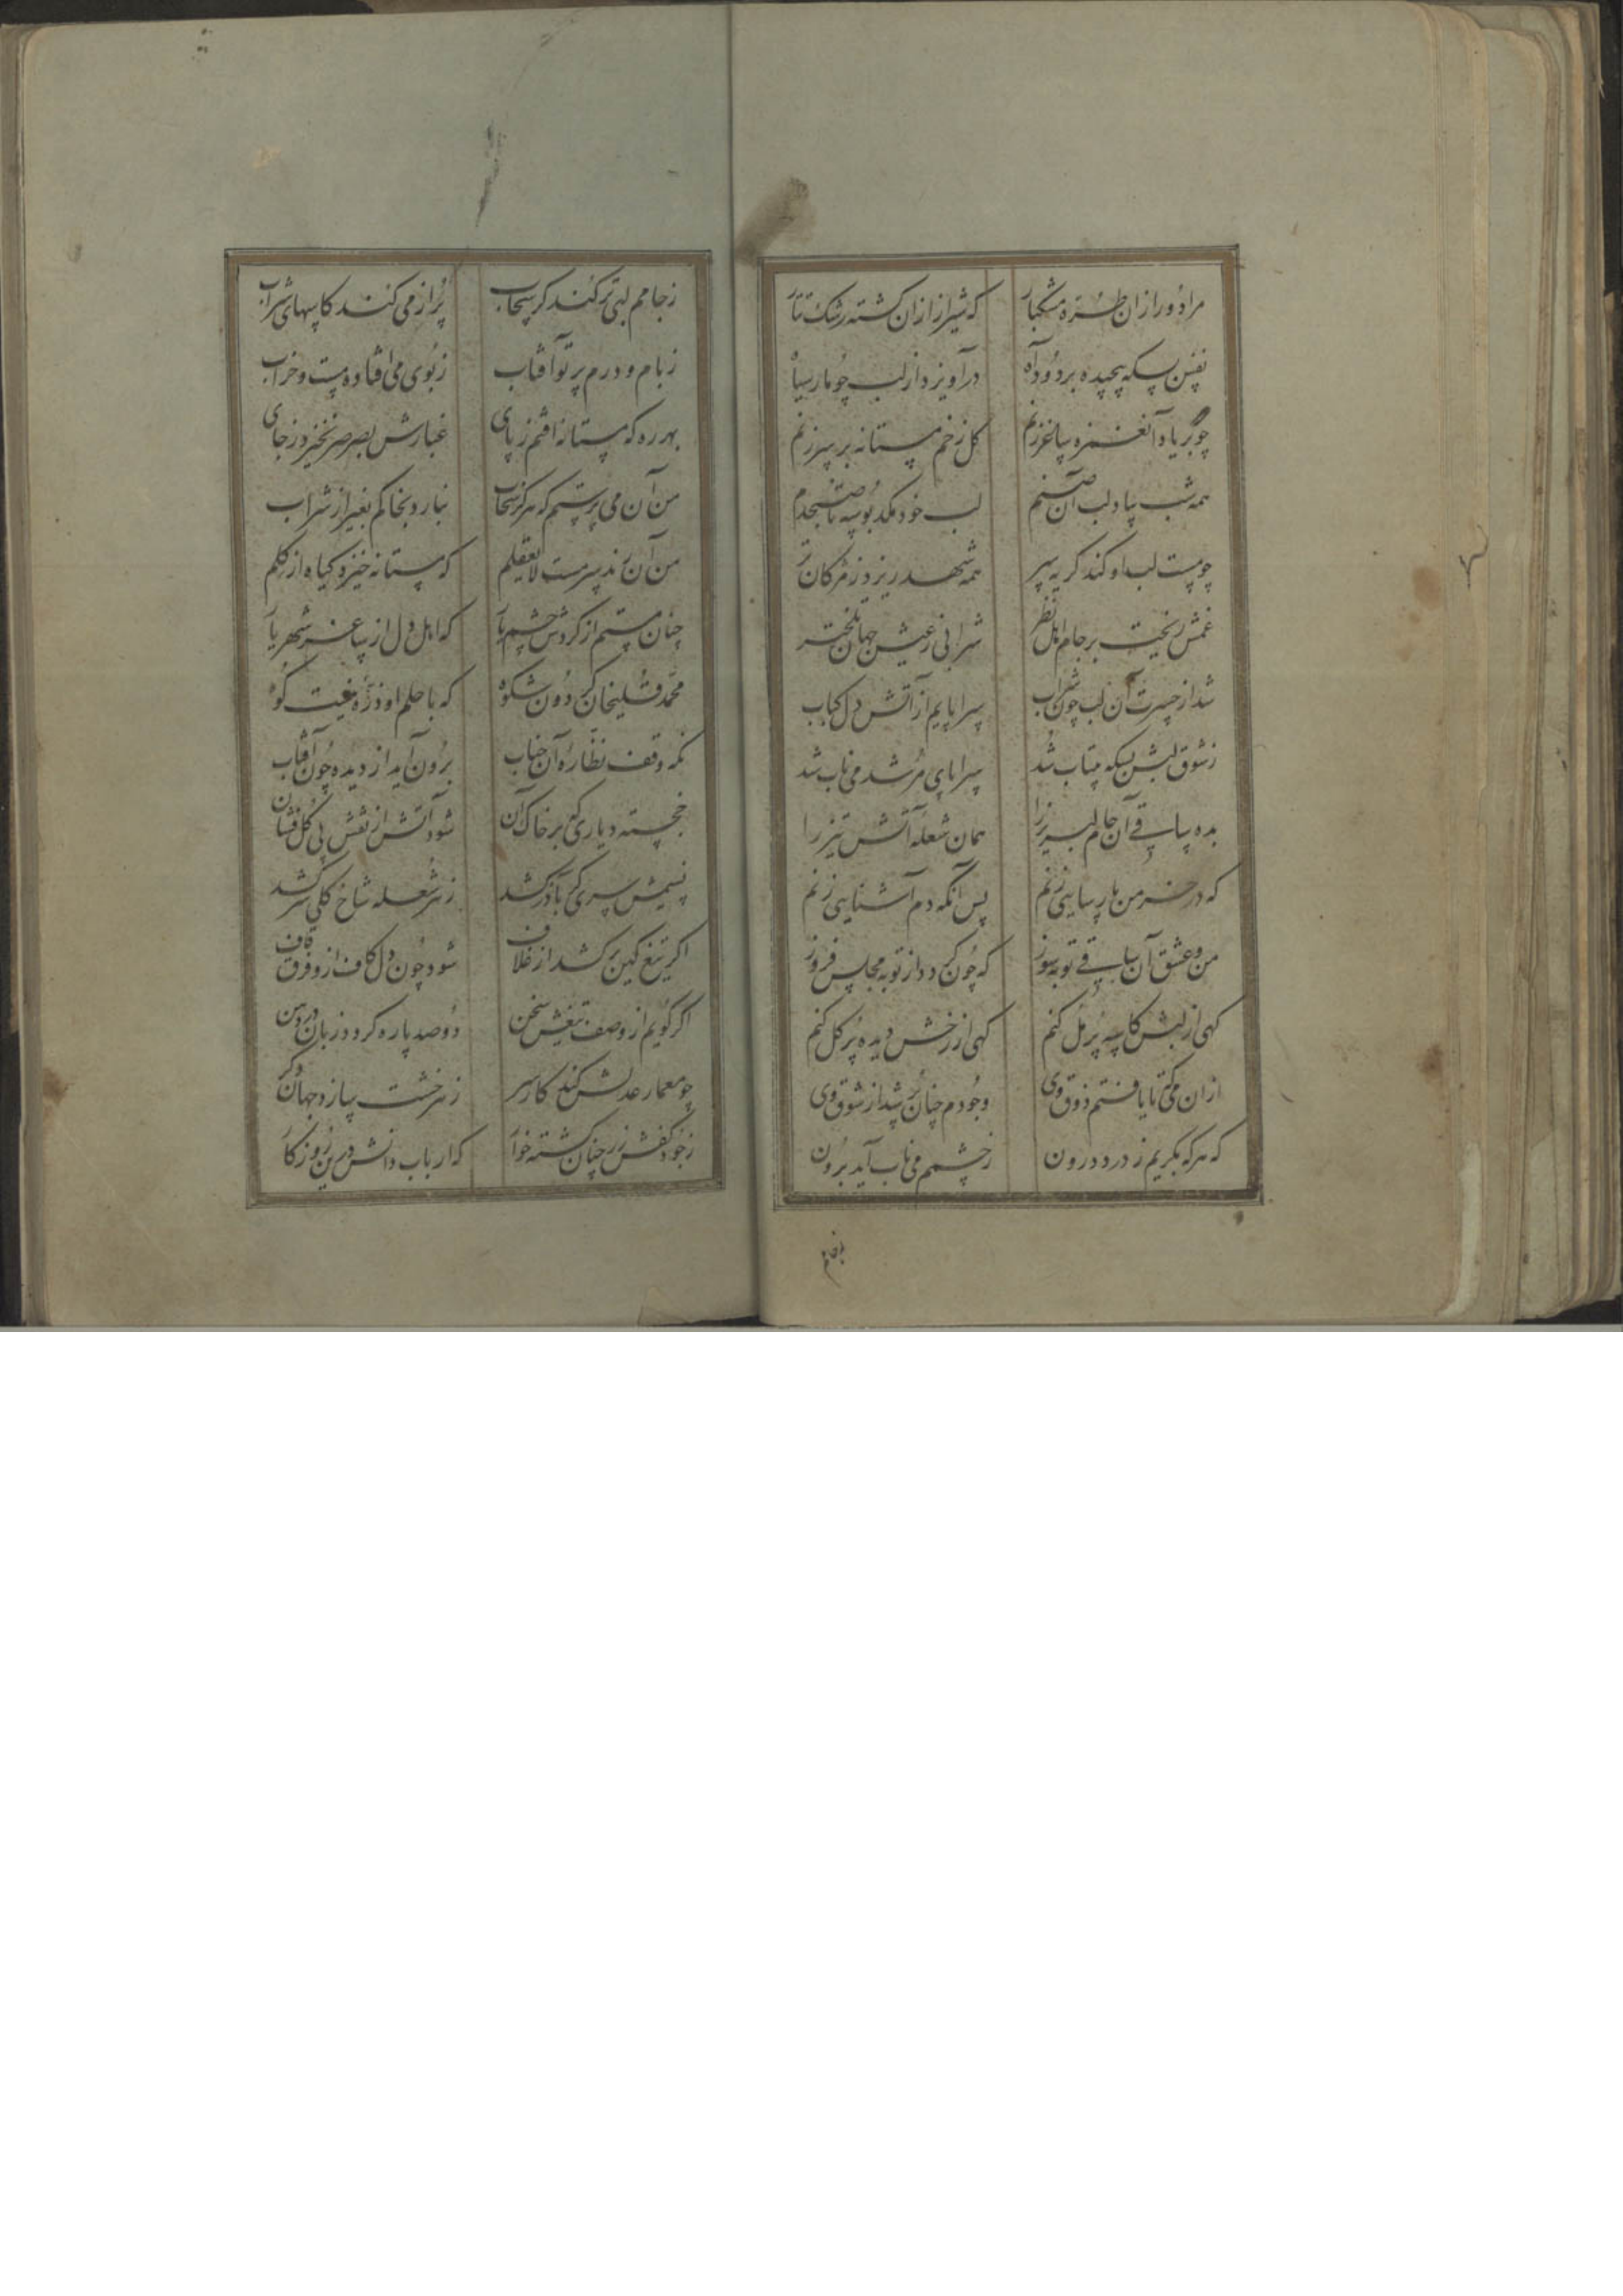 مرا دور ازان طره مشکبار که شیراز ازان کشته رشک تتار
نفس بسکه پیچیده بر دود آه در آویزد از لب چو مار سیاه
چو بر یاد آن غمزه ساغر زنم کل زخم مستانه بر سر زنم
همه شب بیاد لب آن صنم لب خود مکد بوسه تا صبحدم
چو مست لب او کند کریه سر همه شهد ریزد ز مژکان تر
غمش ریخت بر جام اهل نظر شرابی ز عیش جهان تلختر
شد از حسرت آن لب چون شراب سراپایم از آتش دل کباب
ز شوق لبش بسکه بیتاب شد سراپای مرشد می ناب شد
بده ساقی آن جام لبریز را همان شعله آتش تیز را
که در خرمن پارسایی زنم پس آنکه دم آشنایی زنم
من و عشق آن ساقی توبه سوز که چون کردد از توبه مجلس فروز
کهی از لبش کاسه پر مل کنم کهی از رخش دیده پر کل کنم
ازان می که تا یافتم ذوق وی وجودم چنان پر شد از شوق وی
که هر که بکریم ز درد درون ز چشمم می ناب آید برون
ز جامم لبی تر کند کر سحاب پر از می کند کاسهای شراب
ز بام و درم پرتو آفتاب ز بوی می افتاده مست و خراب
بهر ره که مستانه افتم ز پای غبارش بصرصر نخیزد ز جای
من آن می پرستم که هرکز سحاب نبارد بخاکم بغیر از شراب
من آن رند سرمست لایعقلم که مستانه خیزد کیاه از کلم
چنان مستم از کردش چشم یار که اهل دل از ساغر شهریار
محمد قلیخان کردون شکوه که با حلم او ذره‌ نیست کوه
نکه وقف نظاره آن جناب برون آید از دیده چون آفتاب
خجسته دیاری که بر خاک آن شود آتش از نقش پی کل فشان
نسیمش سری کر بآذر کشد ز هر شعله شاخ کلی سر کشد
اکر تیغ کین بر کشد از غلاف شود چون دل کاف ازو فرق قاف
اکر کویم از وصف تیغش سخن دو صد پاره کردد زبان در دهن
چو معمار عدلش کند کار سر ز هر خشت سازد جهان دکر
ز جود کفش زر چنان کشته خوار که ارباب دانش درین روزکار